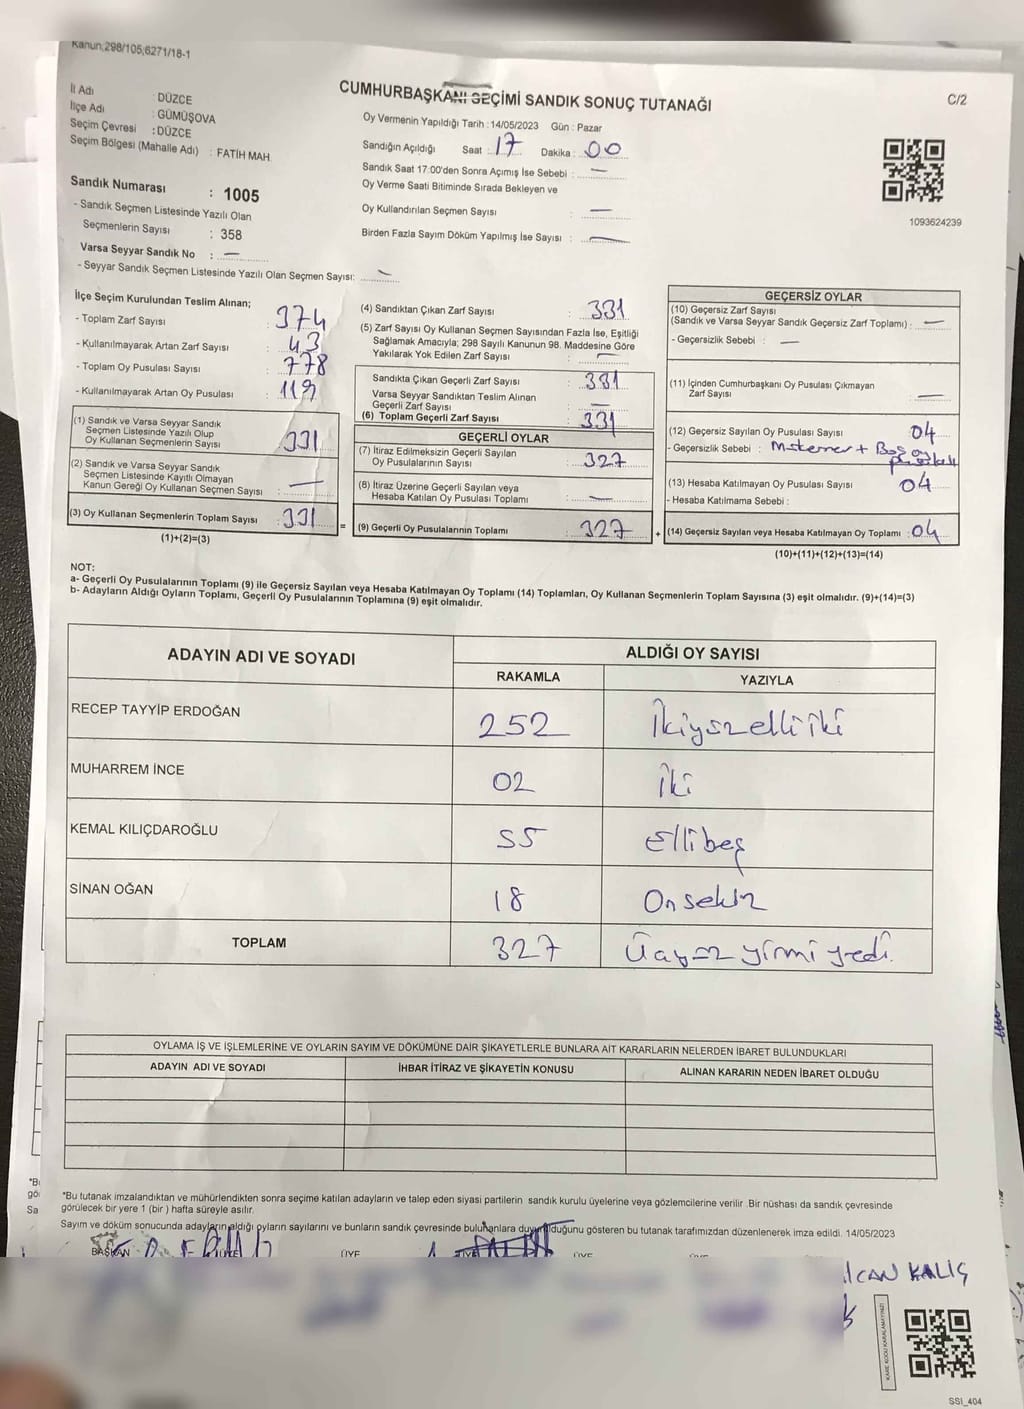 Kanun;298/105;6271/18-1
CUMHURBAŞKANI SEÇİMİ SANDIK SONUÇ TUTANAĞI
C/2
İl Adı : DÜZCE
İlçe Adı : GÜMÜŞOVA
Seçim Çevresi : DÜZCE
Seçim Bölgesi (Mahalle Adı) : FATİH MAH.
Sandık Numarası : 1005
- Sandık Seçmen Listesinde Yazılı Olan
Seçmenlerin Sayısı : 358
Varsa Seyyar Sandık No : —
- Seyyar Sandık Seçmen Listesinde Yazılı Olan Seçmen Sayısı: —
Oy Vermenin Yapıldığı Tarih : 14/05/2023 Gün : Pazar
Sandığın Açıldığı Saat : 17 Dakika : 00
Sandık Saat 17:00'den Sonra Açımış İse Sebebi : —
Oy Verme Saati Bitiminde Sırada Bekleyen ve
Oy Kullandırılan Seçmen Sayısı : —
Birden Fazla Sayım Döküm Yapılmış İse Sayısı : —
1093624239
İlçe Seçim Kurulundan Teslim Alınan;
- Toplam Zarf Sayısı : 374
- Kullanılmayarak Artan Zarf Sayısı : 43
- Toplam Oy Pusulası Sayısı : 778
- Kullanılmayarak Artan Oy Pusulası : 119
(1) Sandık ve Varsa Seyyar Sandık
Seçmen Listesinde Yazılı Olup
Oy Kullanan Seçmenlerin Sayısı : 331
(2) Sandık ve Varsa Seyyar Sandık
Seçmen Listesinde Kayıtlı Olmayan
Kanun Gereği Oy Kullanan Seçmen Sayısı : —
(3) Oy Kullanan Seçmenlerin Toplam Sayısı : 331
(1)+(2)=(3)
=
(4) Sandıktan Çıkan Zarf Sayısı : 331
(5) Zarf Sayısı Oy Kullanan Seçmen Sayısından Fazla İse, Eşitliği
Sağlamak Amacıyla; 298 Sayılı Kanunun 98. Maddesine Göre
Yakılarak Yok Edilen Zarf Sayısı : —
Sandıkta Çıkan Geçerli Zarf Sayısı : 331
Varsa Seyyar Sandıktan Teslim Alınan
Geçerli Zarf Sayısı : —
(6) Toplam Geçerli Zarf Sayısı : 331
GEÇERLİ OYLAR
(7) İtiraz Edilmeksizin Geçerli Sayılan
Oy Pusulalarının Sayısı : 327
(8) İtiraz Üzerine Geçerli Sayılan veya
Hesaba Katılan Oy Pusulası Toplamı : —
(9) Geçerli Oy Pusulalarının Toplamı : 327
+
GEÇERSİZ OYLAR
(10) Geçersiz Zarf Sayısı
(Sandık ve Varsa Seyyar Sandık Geçersiz Zarf Toplamı) : —
- Geçersizlik Sebebi : —
(11) İçinden Cumhurbaşkanı Oy Pusulası Çıkmayan
Zarf Sayısı : —
(12) Geçersiz Sayılan Oy Pusulası Sayısı : 04
- Geçersizlik Sebebi : + Boş oy
(13) Hesaba Katılmayan Oy Pusulası Sayısı : 04
- Hesaba Katılmama Sebebi :
(14) Geçersiz Sayılan veya Hesaba Katılmayan Oy Toplamı : 04
(10)+(11)+(12)+(13)=(14)
NOT:
a- Geçerli Oy Pusulalarının Toplamı (9) ile Geçersiz Sayılan veya Hesaba Katılmayan Oy Toplamı (14) Toplamları, Oy Kullanan Seçmenlerin Toplam Sayısına (3) eşit olmalıdır. (9)+(14)=(3)
b- Adayların Aldığı Oyların Toplamı, Geçerli Oy Pusulalarının Toplamına (9) eşit olmalıdır.
ADAYIN ADI VE SOYADI
ALDIĞI OY SAYISI
RAKAMLA YAZIYLA
RECEP TAYYİP ERDOĞAN 252 İkiyüzelliiki
MUHARREM İNCE 02 İki
KEMAL KILIÇDAROĞLU 55 Ellibeş
SİNAN OĞAN 18 Onsekiz
TOPLAM 327 Üçyüz yirmi yedi.
OYLAMA İŞ VE İŞLEMLERİNE VE OYLARIN SAYIM VE DÖKÜMÜNE DAİR ŞİKAYETLERLE BUNLARA AİT KARARLARIN NELERDEN İBARET BULUNDUKLARI
ADAYIN ADI VE SOYADI İHBAR İTİRAZ VE ŞİKAYETİN KONUSU ALINAN KARARIN NEDEN İBARET OLDUĞU
*Bu tutanak imzalandıktan ve mühürlendikten sonra seçime katılan adayların ve talep eden siyasi partilerin sandık kurulu üyelerine veya gözlemcilerine verilir. Bir nüshası da sandık çevresinde
görülecek bir yere 1 (bir) hafta süreyle asılır.
Sayım ve döküm sonucunda adayların aldığı oyların sayılarını ve bunların sandık çevresinde bulunanlara duyurulduğunu gösteren bu tutanak tarafımızdan düzenlenerek imza edildi. 14/05/2023
BAŞKAN ÜYE ÜYE ÜYE ÜYE
CAN KALIŞ
KARE KODU KARALAMAYINIZ!
SSI_404